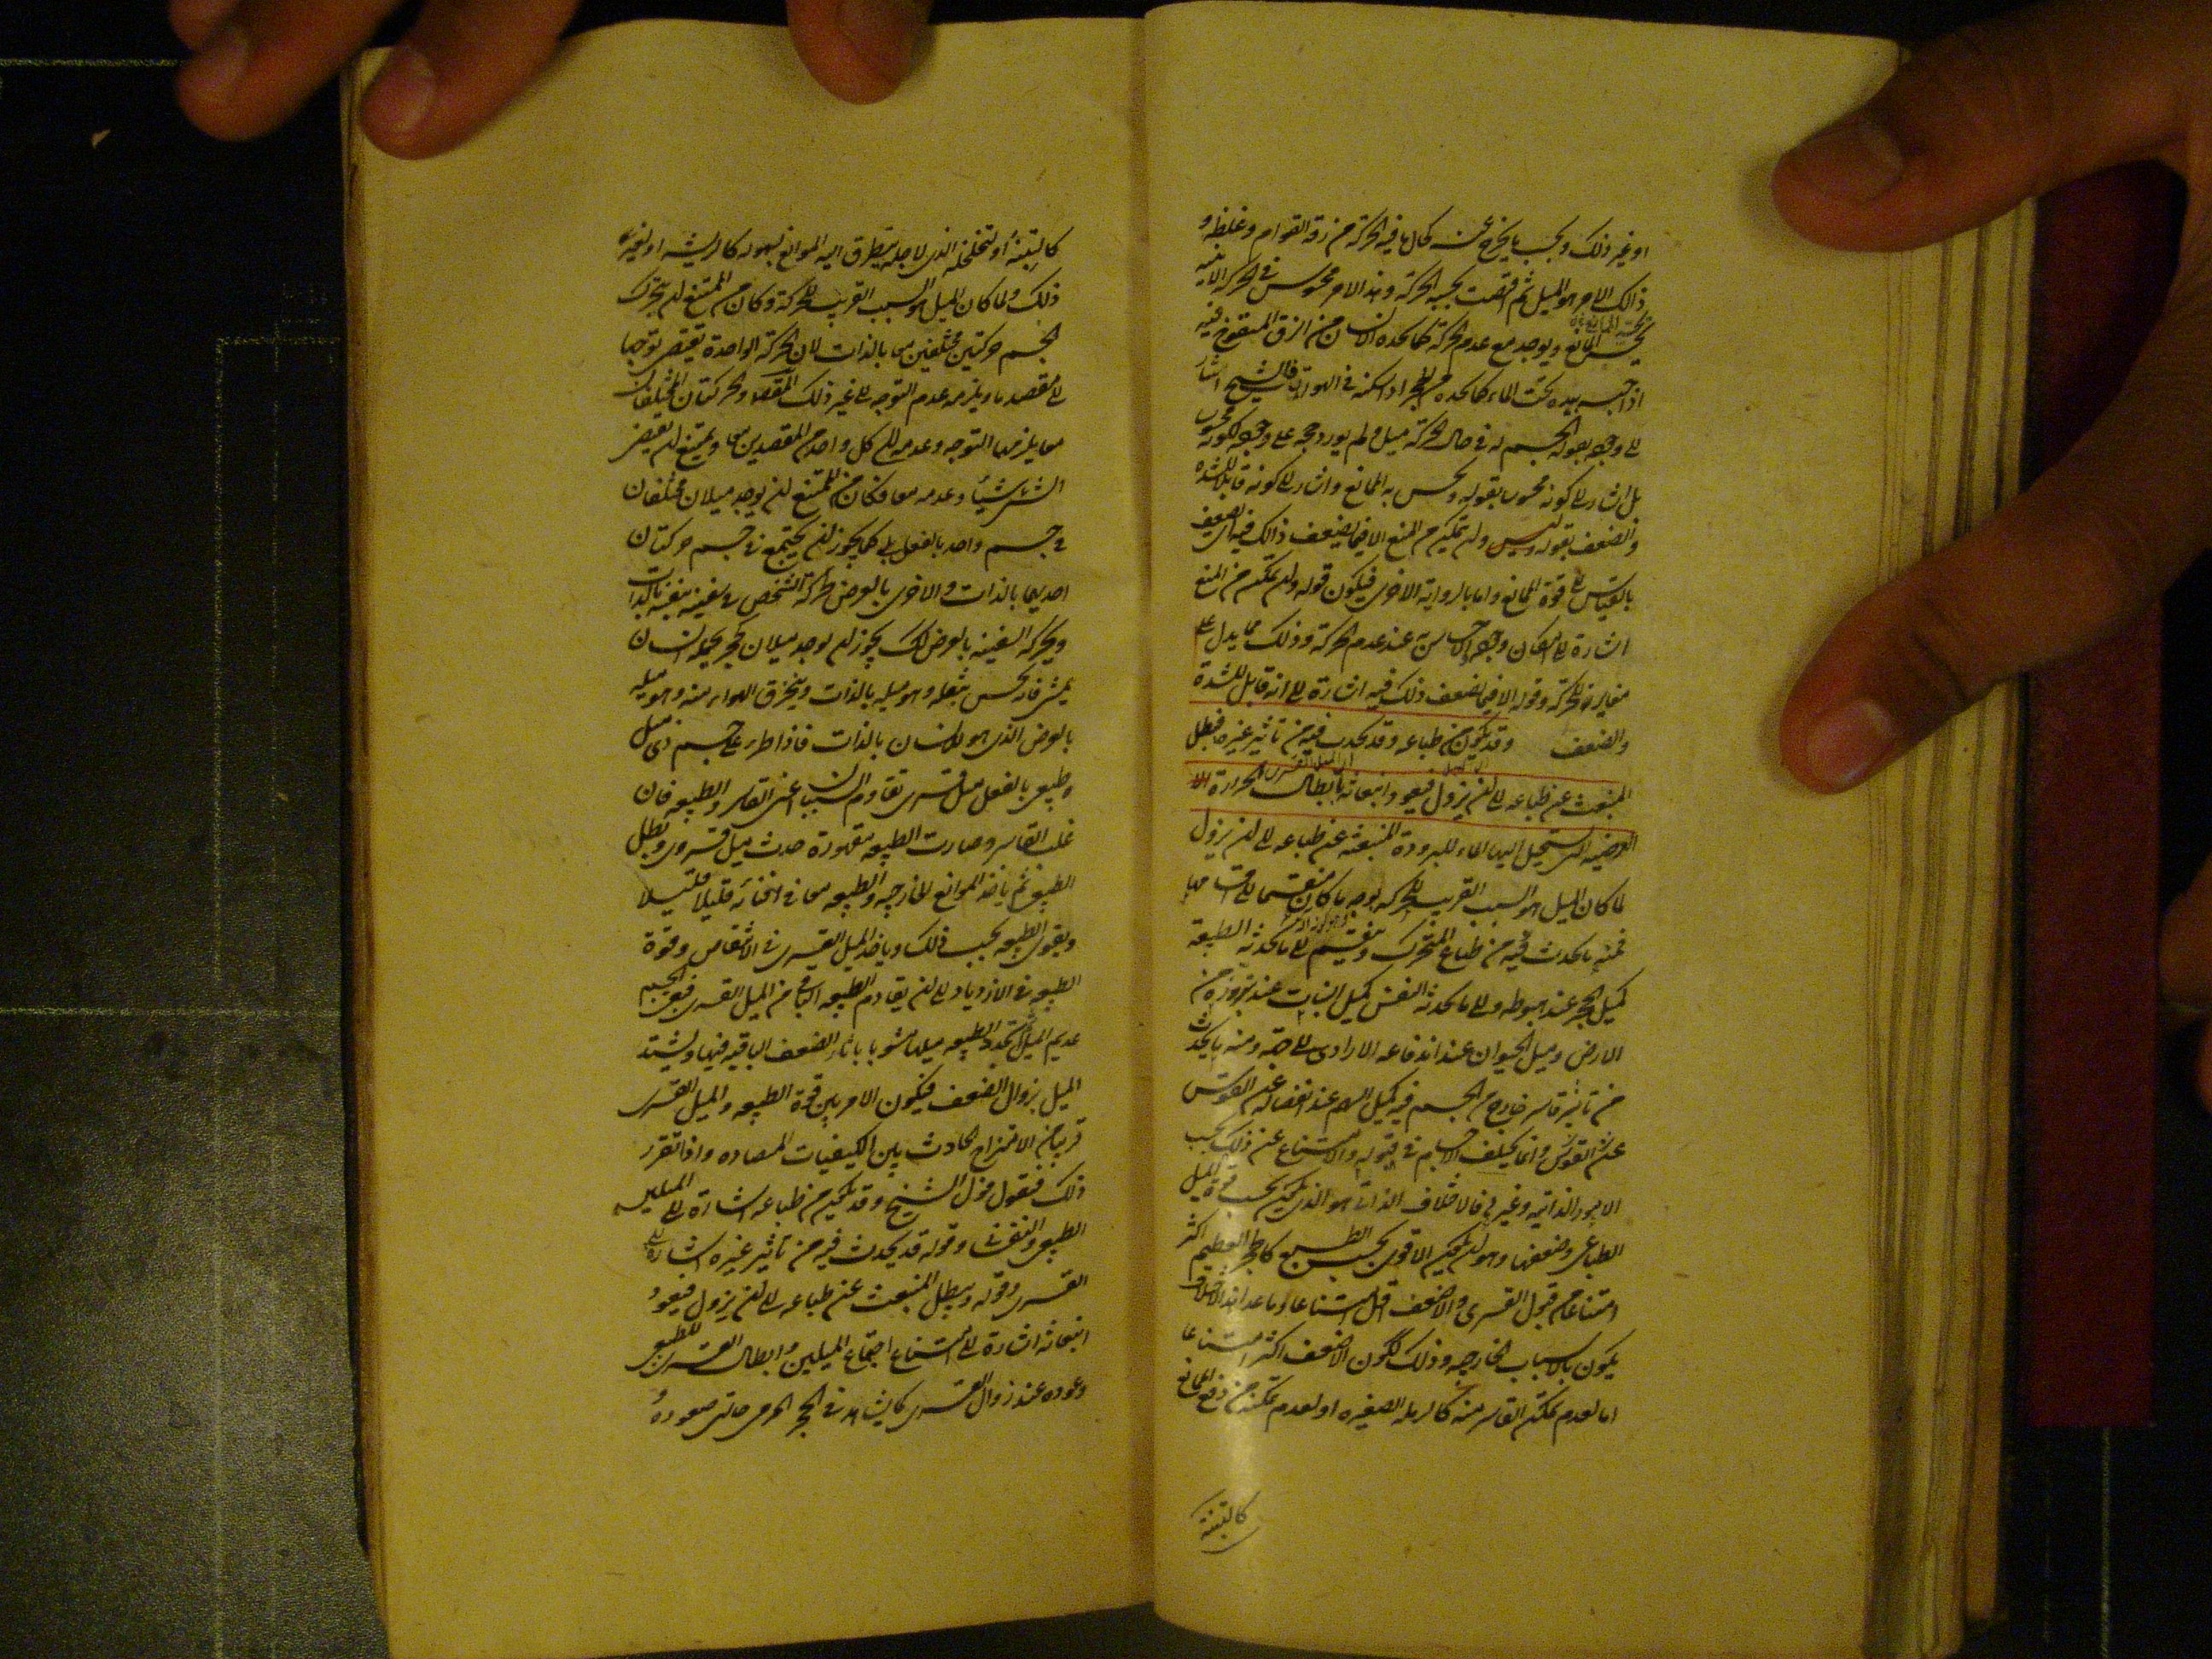 او غير ذلك وبحسب ما يخرج عنه كحال ما فيه الحركة من رقة القوام وغلظه و
ذلك الامر هو الميل ثم اقتضت بحسبه الحركة وهذا الامر محسوس في الحركة الاينية
يحس الممانع ويوجد مع عدم الحركة كما يحده الانسان من الزق المنفوخ فيه
اذا حبسه بيده تحت الماء وكما يحده من الحجر اذا اسكنه في الهواء فالشيخ اشار
الى وجوده بقوله الجسم له في حال الحركة ميل ولم يورد حجة على وجوده لكونه محسوسا
بل اشار الى كونه محسوسا بقوله ويحس به الممانع واشار الى كونه قابلا للشدة
والضعف بقوله وليس ولن يتمكن من المنع الا فيما يضعف ذلك فيه اى يضعف
بالقياس الى قوة الممانع واما بالرواية الاخرى فيكون قوله ولن تمكن من المنع
اشارة الى امكان وجوده والاحساس به عند عدم الحركة وذلك مما يدل على
مغايرته للحركة وقوله الا فيما يضعف ذلك فيه اشارة الى انه قابل للشدة
والضعف وقد يكون من طباعه وقد يحدث فيه من تاثير غيره فيبطل
المنبعث عن طباعه الى ان يزول فيعود انبعاثه ابطال الحرارة
العرضية التى يستحيل اليها الماء للبرودة المنبعثة عن طباعه الى ان يزول
لما كان الميل هو السبب القريب للحركة بوجه ما كان منقسما الى اقسامها
فمنه ما يحدث فيه من طباع المتحرك وينقسم الى ما يحدثه الطبيعة
كميل الحجر عند هبوطه والى ما يحدثه النفس كميل النبات عند تبرزه من
الارض وميل الحيوان عند اندفاعه الارادى الى جهة ومنه ما يحدث
من تاثير قاسر خارج من الجسم فيه كميل السهم عند انفصاله عن القوس
عن القوس وانما يختلف الاجسام في قبوله والامتناع عن ذلك بحسب
الامور الذاتية وغيرها فالاختلاف الذاتى هو الذى يكون بحسب قوة الميل
الطباعى وضعفها وهو ان يكون الاقوى بحسب الطبع كالحجر العظيم اكثر
امتناعا من قبول القسرى والاضعف اقل امتناعا وما عدا هذا الاختلاف
يكون بالاسباب الخارجة وذلك ككون الاضعف اكثر امتناعا
اما لعدم تمكن القاسر منه كالرملة الصغيرة او لعدم تمكنه من دفع الممانع
كالتبنة
كالتبنة او لتخلخله الذى لاجله يتطرق اليه الموانع بسهولة كالريشة او لغير
ذلك ولما كان الميل هو السبب القريب للحركة وكان من الممتنع ان يتحرك
الجسم حركتين مختلفتين معا بالذات لان الحركة الواحدة تقتضى توجها
الى مقصد ما ويلزمه عدم التوجه الى غير ذلك المقصد والحركتان المختلفتان
معا يلزمهما التوجه وعدمه الى كل واحد من المقصدين معا ويمتنع ان يقتضى
الشئ شيئا وعدمه معا فكان من الممتنع ان يوجد ميلان مختلفان
في جسم واحد بالفعل بلى كما يجوز ان يجتمع في جسم حركتان
احديهما بالذات والاخرى بالعرض كحركة الشخص في سفينة بنفسه بالذات
وبحركة السفينة بالعرض كذلك يجوز ان يوجد ميلان كحجر يحمله انسان
يمشى فانه يحس بثقله وهو ميله بالذات وينخرق الهواء منه وهو ميله
بالعرض الذى هو للانسان بالذات فاذا طرء على جسم ذى ميل
طبيعى بالفعل ميل قسرى تقاوم السببان اعنى القاسر والطبيعة فان
غلب القاسر وصارت الطبيعة مقهورة حدث ميل قسرى وبطل
الطبيعى ثم ياخذ الموانع الخارجية والطبيعة معا في افنائه قليلا قليلا
ويقوى الطبيعة بحسب ذلك وياخذ الميل القسرى في الانتقاص وقوة
الطبيعة في الازدياد الى ان يقاوم الطبيعة الباقى من الميل القسرى فيبقى الجسم
عديم الميل ثم تجدد الطبيعة ميلها مشوبا باثار الضعف الباقية فيها ويشتد
الميل بزوال الضعف فيكون الامر بين قوة الطبيعة والميل القسرى
قريبا من الامتزاج الحادث بين الكيفيات المتضادة واذا تقرر
ذلك فنقول قول الشيخ وقد يكون من طباعه اشارة الى الميلين
الطبيعى والنفسانى وقوله قد يحدث فيه من تاثير غيره اشارة الى
القسرى وقوله ويبطل المنبعث عن طباعه الى ان يزول فيعود
انبعاثه اشارة الى امتناع اجتماع الميلين وابطال القسرى للطبيعى
وعوده عند زوال القسرى كما يشاهد في الحجر المرمى حالتى صعوده